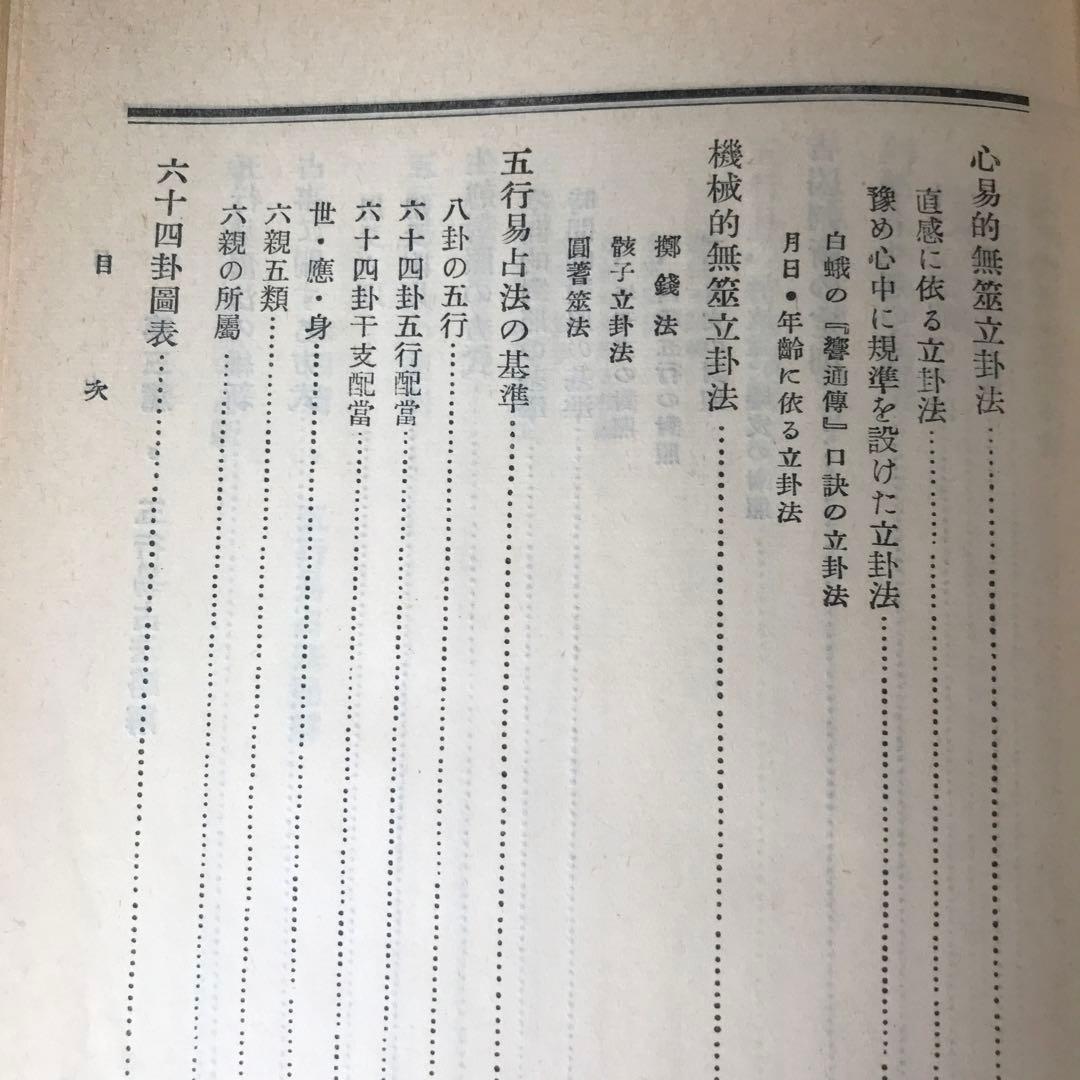 心易的無筮立卦法
直感に依る立卦法
豫め心中に規準を設けた立卦法
白蛾の『響通傳』口訣の立卦法
月日・年齡に依る立卦法
機械的無筮立卦法
擲錢法
骰子立卦法
圓蓍筮法
五行易占法の基準
八卦の五行
六十四卦五行配當
六十四卦干支配當
世・應・身
六親五類
六親の所屬
六十四卦圖表
目次